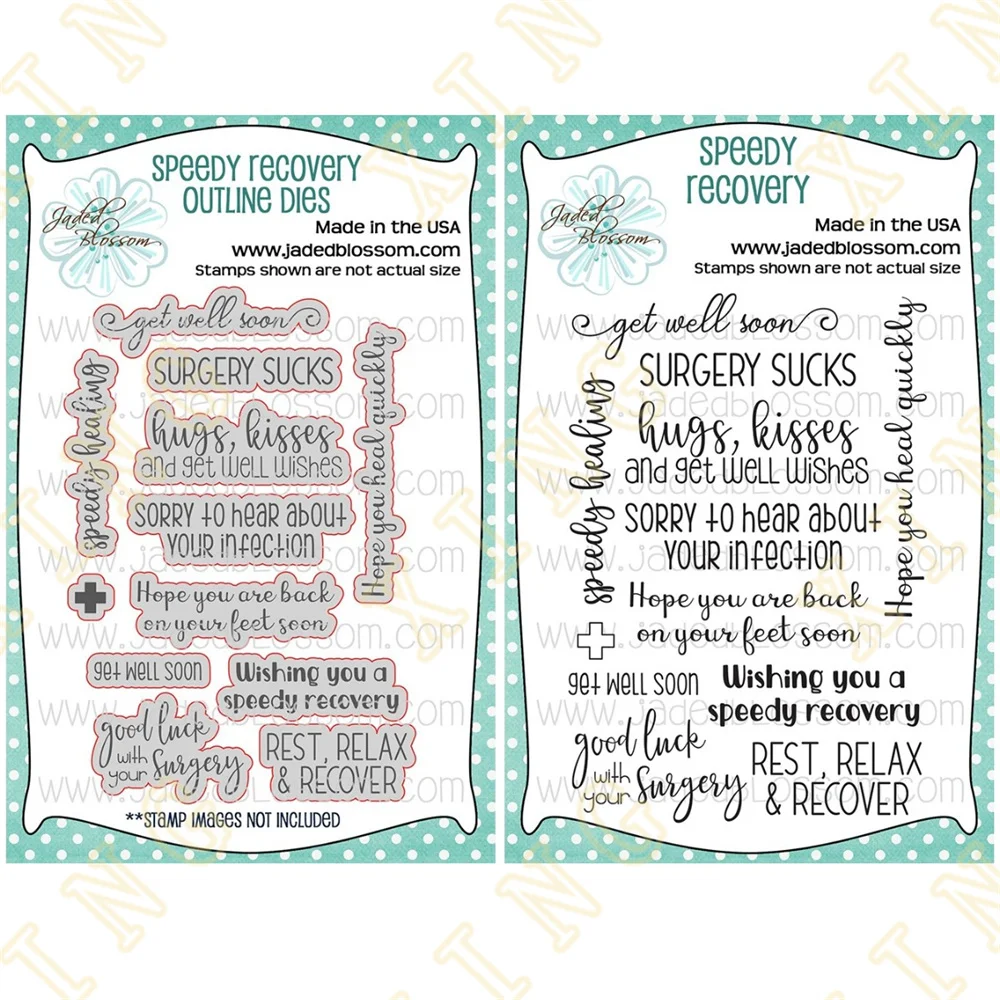 SPEEDY RECOVERY
OUTLINE DIES
Jaded
Blossom
Made in the USA
www.jadedblossom.com
Stamps shown are not actual size
get well soon
SURGERY SUCKS
speedy healing
hugs, kisses
and get well wishes
Hope you heal quickly
SORRY to hear about
your infection
Hope you are back
on your feet soon
get well soon
Wishing you a
speedy recovery
good luck
with
your surgery
REST, RELAX
& RECOVER
**STAMP IMAGES NOT INCLUDED
www.jadedblossom.com
www.jadedblossom.com
www.jadedblossom.com
www.jadedblossom.com
www.jadedblossom.com
www.jadedblossom.com
SPEEDY
RECOVERY
Jaded
Blossom
Made in the USA
www.jadedblossom.com
Stamps shown are not actual size
get well soon
SURGERY SUCKS
speedy healing
hugs, kisses
and get well wishes
Hope you heal quickly
SORRY to hear about
your infection
Hope you are back
on your feet soon
get well soon
Wishing you a
speedy recovery
good luck
with
your surgery
REST, RELAX
& RECOVER
www.jadedblossom.com
www.jadedblossom.com
www.jadedblossom.com
www.jadedblossom.com
www.jadedblossom.com
www.jadedblossom.com